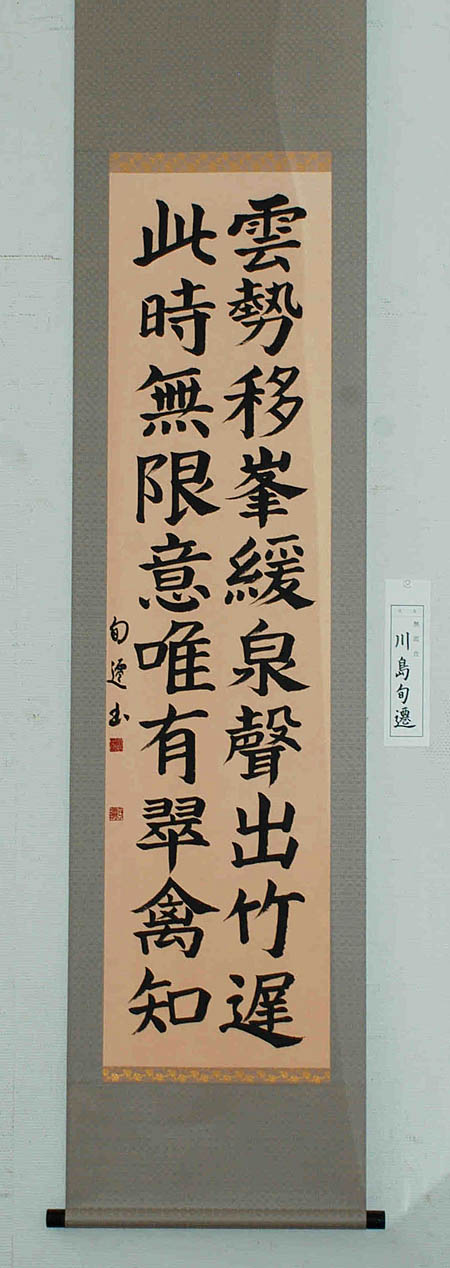 雲勢移峯緩泉聲出竹遲
此時無限意唯有翠禽知
旬遷書
川島旬遷